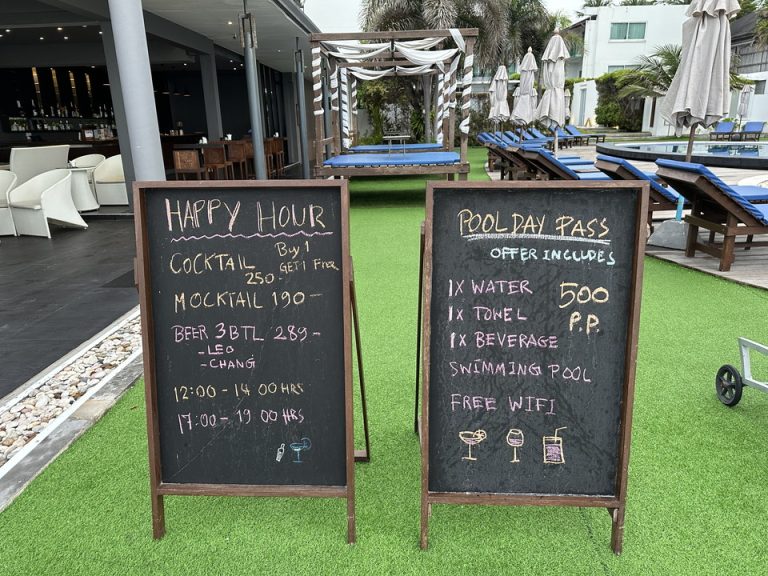 HAPPY HOUR
COCKTAIL Buy 1
250- GET 1 Free
MOCKTAIL 190-
BEER 3BTL 289-
-LEO
-CHANG
12:00 - 14 00 HRS
17:00 - 19 00 HRS
POOLDAY PASS
OFFER INCLUDES
1X WATER 500
1X TOWEL P.P.
1X BEVERAGE
SWIMMING POOL
FREE WIFI